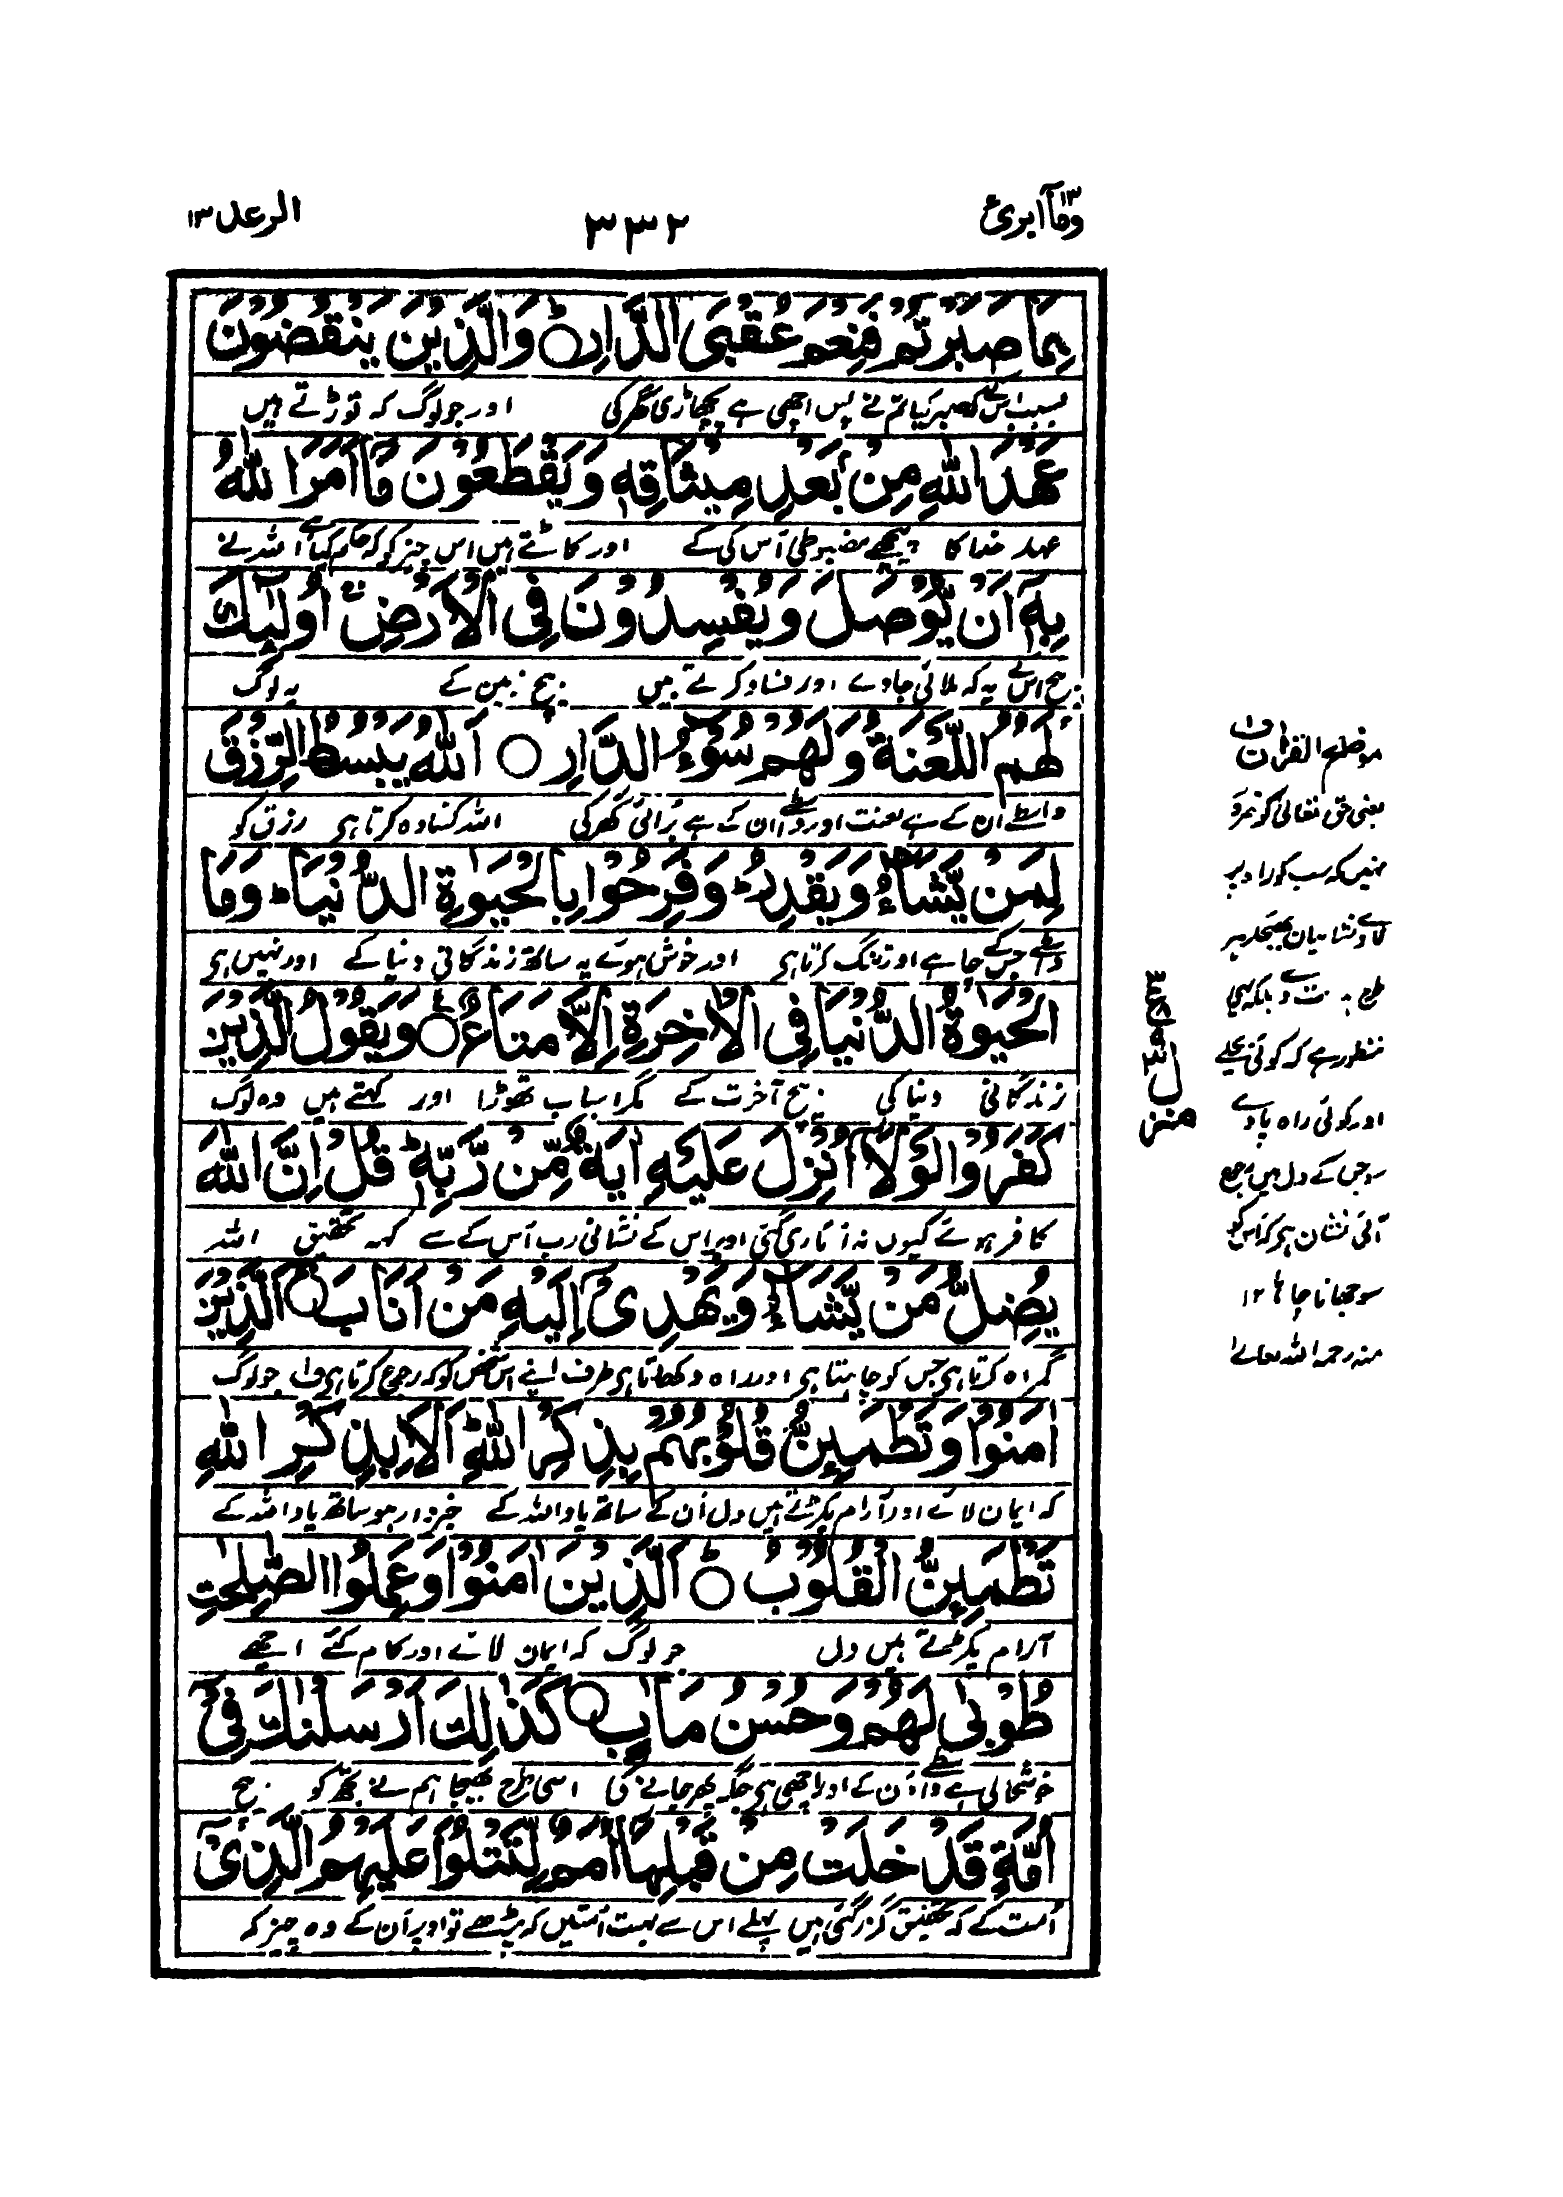 وما ابرئ ١٣
٣٣٢
الرعد ١٣
بِمَا صَبَرْتُمْ فَنِعْمَ عُقْبَى الدَّارِ ○ وَالَّذِيْنَ يَنْقُضُوْنَ
بسبب اس کے کہ صبر کیا تم نے پس اچھی ہے پچھاڑی گھر کی اور جو لوگ کہ توڑتے ہیں
عَهْدَ اللّٰهِ مِنْ بَعْدِ مِيْثَاقِهٖ وَيَقْطَعُوْنَ مَآ اَمَرَ اللّٰهُ
عہد خدا کا پیچھے مضبوطی اس کی کے اور کاٹتے ہیں اس چیز کو کہ حکم کیا اللہ نے
بِهٖٓ اَنْ يُّوْصَلَ وَيُفْسِدُوْنَ فِى الْاَرْضِ اُولٰٓئِكَ
بیچ اس کے یہ کہ ملائی جاوے اور فساد کرتے ہیں بیچ زمین کے یہ لوگ
لَهُمُ اللَّعْنَةُ وَلَهُمْ سُوْٓءُ الدَّارِ ○ اَللّٰهُ يَبْسُطُ الرِّزْقَ
واسطے ان کے ہے لعنت اور واسطے ان کے ہے برائی گھر کی اللہ کشادہ کرتا ہی رزق کو
لِمَنْ يَّشَآءُ وَيَقْدِرُ ط وَفَرِحُوْا بِالْحَيٰوةِ الدُّنْيَا ط وَمَا
واسطے جس کے چاہے اور تنگ کرتا ہی اور خوش ہوئے یہ ساتھ زندگانی دنیا کے اور نہیں ہی
الْحَيٰوةُ الدُّنْيَا فِى الْاٰخِرَةِ اِلَّا مَتَاعٌ ○ وَيَقُوْلُ الَّذِيْنَ
زندگانی دنیا کی بیچ آخرت کے مگر اسباب تھوڑا اور کہتے ہیں وہ لوگ
كَفَرُوْا لَوْلَآ اُنْزِلَ عَلَيْهِ اٰيَةٌ مِّنْ رَّبِّهٖ ط قُلْ اِنَّ اللّٰهَ
کافر ہوئے کیوں نہ اتاری گئی اوپر اس کے نشانی رب اس کے سے کہہ تحقیق اللہ
يُضِلُّ مَنْ يَّشَآءُ وَيَهْدِىْٓ اِلَيْهِ مَنْ اَنَابَ ○ اَلَّذِيْنَ
گمراہ کرتا ہی جس کو چاہتا ہی اور راہ دکھاتا ہی طرف اپنے اس شخص کو کہ رجوع کرتا ہی ف جو لوگ
اٰمَنُوْا وَتَطْمَئِنُّ قُلُوْبُهُمْ بِذِكْرِ اللّٰهِ ط اَلَا بِذِكْرِ اللّٰهِ
کہ ایمان لائے اور آرام پکڑتے ہیں دل ان کے ساتھ یاد اللہ کے خبردار ہو ساتھ یاد اللہ کے
تَطْمَئِنُّ الْقُلُوْبُ ○ اَلَّذِيْنَ اٰمَنُوْا وَعَمِلُوا الصّٰلِحٰتِ
آرام پکڑتے ہیں دل جو لوگ کہ ایمان لائے اور کام کئے اچھے
طُوْبٰى لَهُمْ وَحُسْنُ مَاٰبٍ ○ كَذٰلِكَ اَرْسَلْنٰكَ فِىْٓ
خوشحالی ہے واسطے ان کے اور اچھی ہی جگہ پھر جانے کی اسی طرح بھیجا ہم نے تجھ کو بیچ
اُمَّةٍ قَدْ خَلَتْ مِنْ قَبْلِهَآ اُمَمٌ لِّتَتْلُوَا عَلَيْهِمُ الَّذِىْٓ
امت کے کہ تحقیق گزر گئی ہیں پہلے اس سے بہت امتیں کہ پڑھے تو اوپر ان کے وہ چیز کہ
موضح القرآن ف
یعنی حق تعالیٰ کو ضرور
نہیں کہ سب کو راہ پر
لاوے نشانیاں بھیجکر ہر
طرح بلکہ یہی
منظور ہے کہ کوئی بچلے
اور کوئی راہ پاوے
سو جس کے دل میں رجوع
آئی نشان ہی کہ اس کو
سوجھانا چاہا ١٢
منہ رحمہ اللہ تعالے
منزل ٣